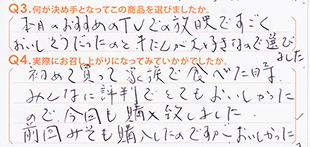 Q3.何が決め手となってこの商品を選びましたか。
本日のおすすめのTVでの放映ですごく
おいしそうだったのと牛たんが大好きなので選び
ました
Q4.実際にお召し上がりになってみていかがでしたか。
初めて買って家族で食べた時、
みんなに評判でとてもおいしかった
ので今回も購入致しました。
前回みそも購入したのですがおいしかった